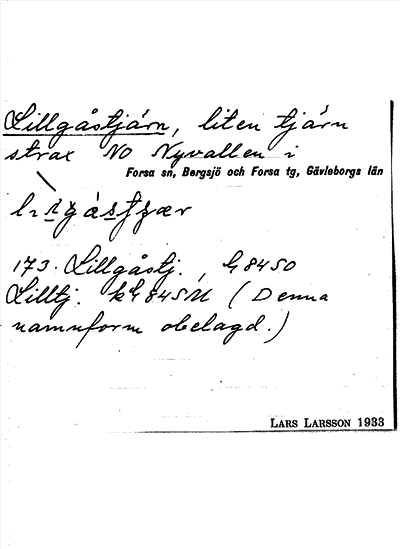 Lillgåstjärn, liten tjärn
strax NO Nyvallen i
Forsa sn, Bergsjö och Forsa tg, Gävleborgs län
173. Lillgåstj., G8450
Lilltj. kG845M (Denna
namnform obelagd.)
LARS LARSSON 1933